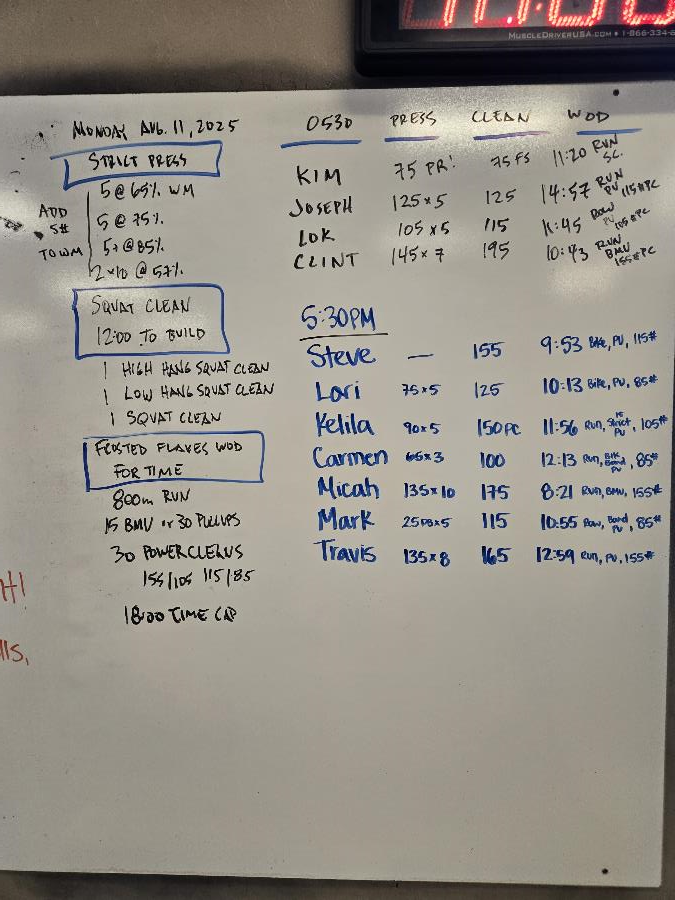 MUSCLEDRIVERUSA.COM • 1-866-334-6
MONDAY AUG. 11, 2025
STRICT PRESS
5 @ 65% WM
ADD 5# TO WM
5 @ 75%
5+ @ 85%
2 x 10 @ 57%
SQUAT CLEAN
12:00 TO BUILD
1 HIGH HANG SQUAT CLEAN
1 LOW HANG SQUAT CLEAN
1 SQUAT CLEAN
FROSTED FLAKES WOD
FOR TIME
800m RUN
15 BMU or 30 PULLUPS
30 POWERCLEANS
155/105 115/85
18:00 TIME CAP
0530 PRESS CLEAN WOD
KIM 75 PR! 75 FS 11:20 RUN SC.
JOSEPH 125 x 5 125 14:57 RUN PU 115# PC
LOK 105 x 5 115 11:45 ROW PU 105# PC
CLINT 145 x 7 195 10:43 RUN BMU 155# PC
5:30PM
Steve — 155 9:53 Bike, PU, 115#
Lori 75x5 125 10:13 Bike, PU, 85#
Kelila 90x5 150PC 11:56 Run, 15 Strict PU, 105#
Carmen 65x3 100 12:13 Run, Band PU, 85#
Micah 135x10 175 8:21 Run, BMU, 155#
Mark 25DBx5 115 10:55 Row, Band PU, 85#
Travis 135x8 165 12:59 Run, PU, 155#